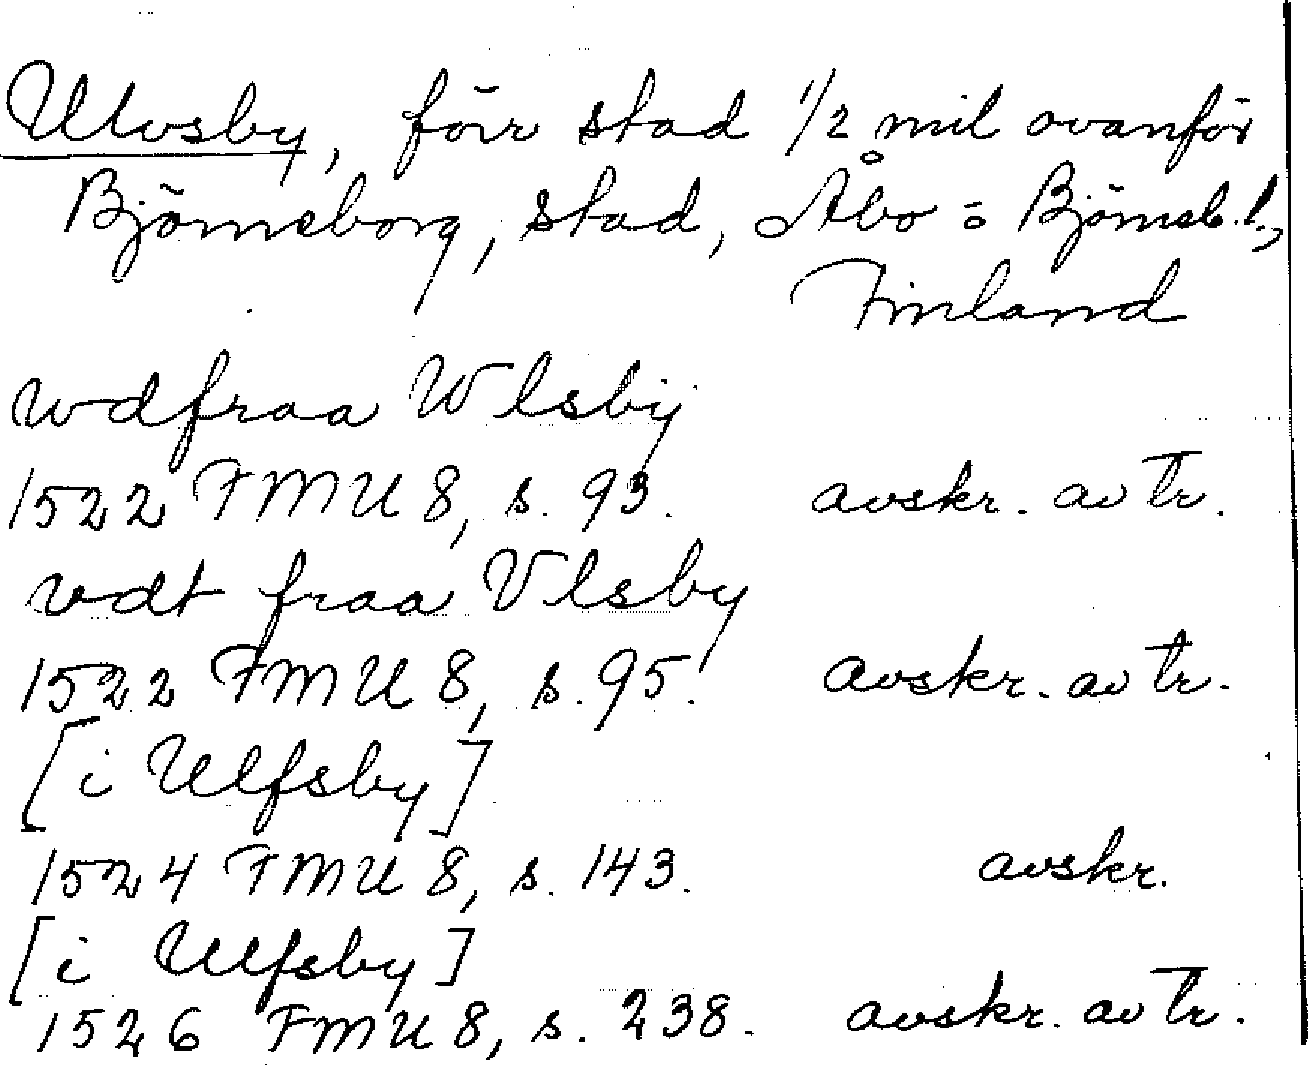 Ulvsby, förr stad 1/2 mil ovanför
Björneborg, stad, Åbo o Björneb. l.,
Finland
wdfraa Wlsbÿ
1522 FMU 8, s. 93. avskr. av tr.
vdt fraa Vlsby
1522 FMU 8, s. 95. avskr. av tr.
[i Ulfsby]
1524 FMU 8, s. 143. avskr.
[i Ulfsby]
1526 FMU 8, s. 238. avskr. av tr.